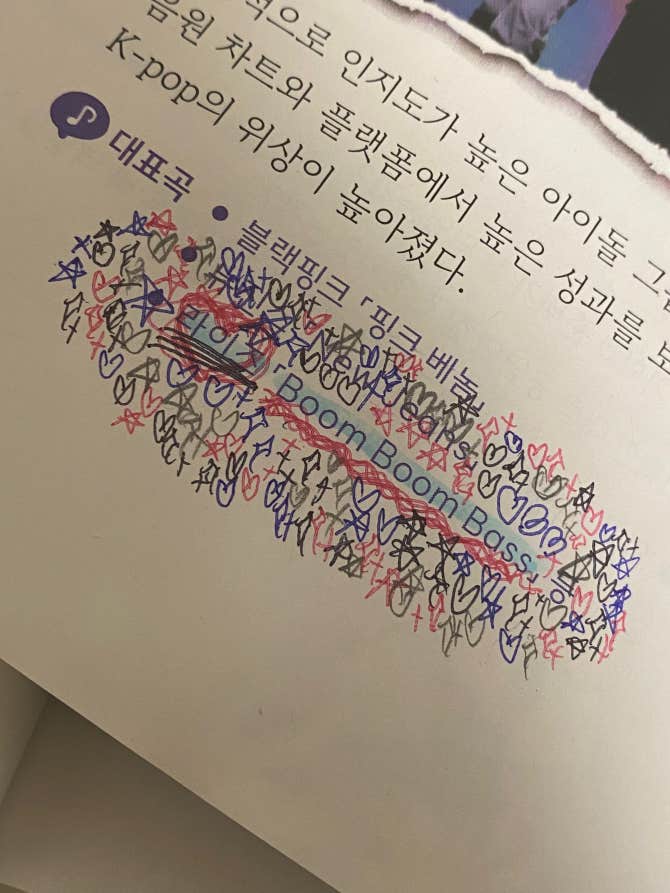 적으로 인지도가 높은 아이돌 그
음원 차트와 플랫폼에서 높은 성과를 보
K-pop의 위상이 높아졌다.
대표곡
• 블랙핑크 「핑크 베놈」
• New Jeans」
• 라이즈 「Boom Boom Bass」 등